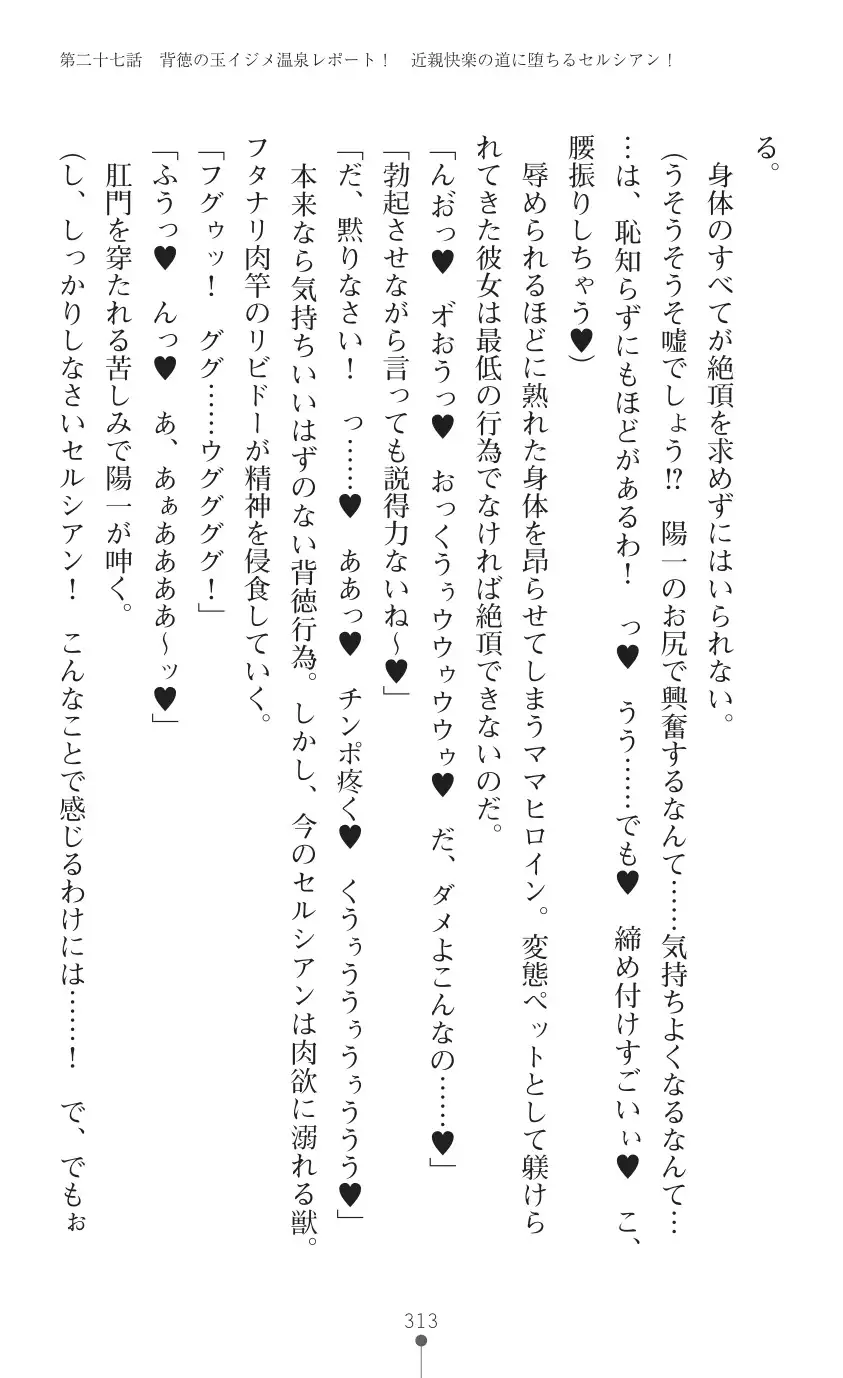 第二十七話　背徳の玉イジメ温泉レポート！　近親快楽の道に堕ちるセルシアン！
る。
　身体のすべてが絶頂を求めずにはいられない。
（うそうそうそ嘘でしょう!?　陽一のお尻で興奮するなんて……気持ちよくなるなんて…
…は、恥知らずにもほどがあるわ！　っ♥　うう……でも♥　締め付けすごいぃ♥　こ、
腰振りしちゃう♥）
　辱められるほどに熟れた身体を昂らせてしまうママヒロイン。変態ペットとして躾けら
れてきた彼女は最低の行為でなければ絶頂できないのだ。
「んお゛っ♥　オ゛おうっ♥　おっくうぅウウゥウウゥ♥　だ、ダメよこんなの……♥」
「勃起させながら言っても説得力ないね～♥」
「だ、黙りなさい！　っ……♥　ああっ♥　チンポ疼く♥　くうぅううぅうぅううう♥」
　本来なら気持ちいいはずのない背徳行為。しかし、今のセルシアンは肉欲に溺れる獣。
フタナリ肉竿のリビドーが精神を侵食していく。
「フグゥッ！　ググ……ウグググ！」
「ふうっ♥　んっ♥　あ、あぁああああ～ッ♥」
　肛門を穿たれる苦しみで陽一が呻く。
（し、しっかりしなさいセルシアン！　こんなことで感じるわけには……！　で、でもぉ
313